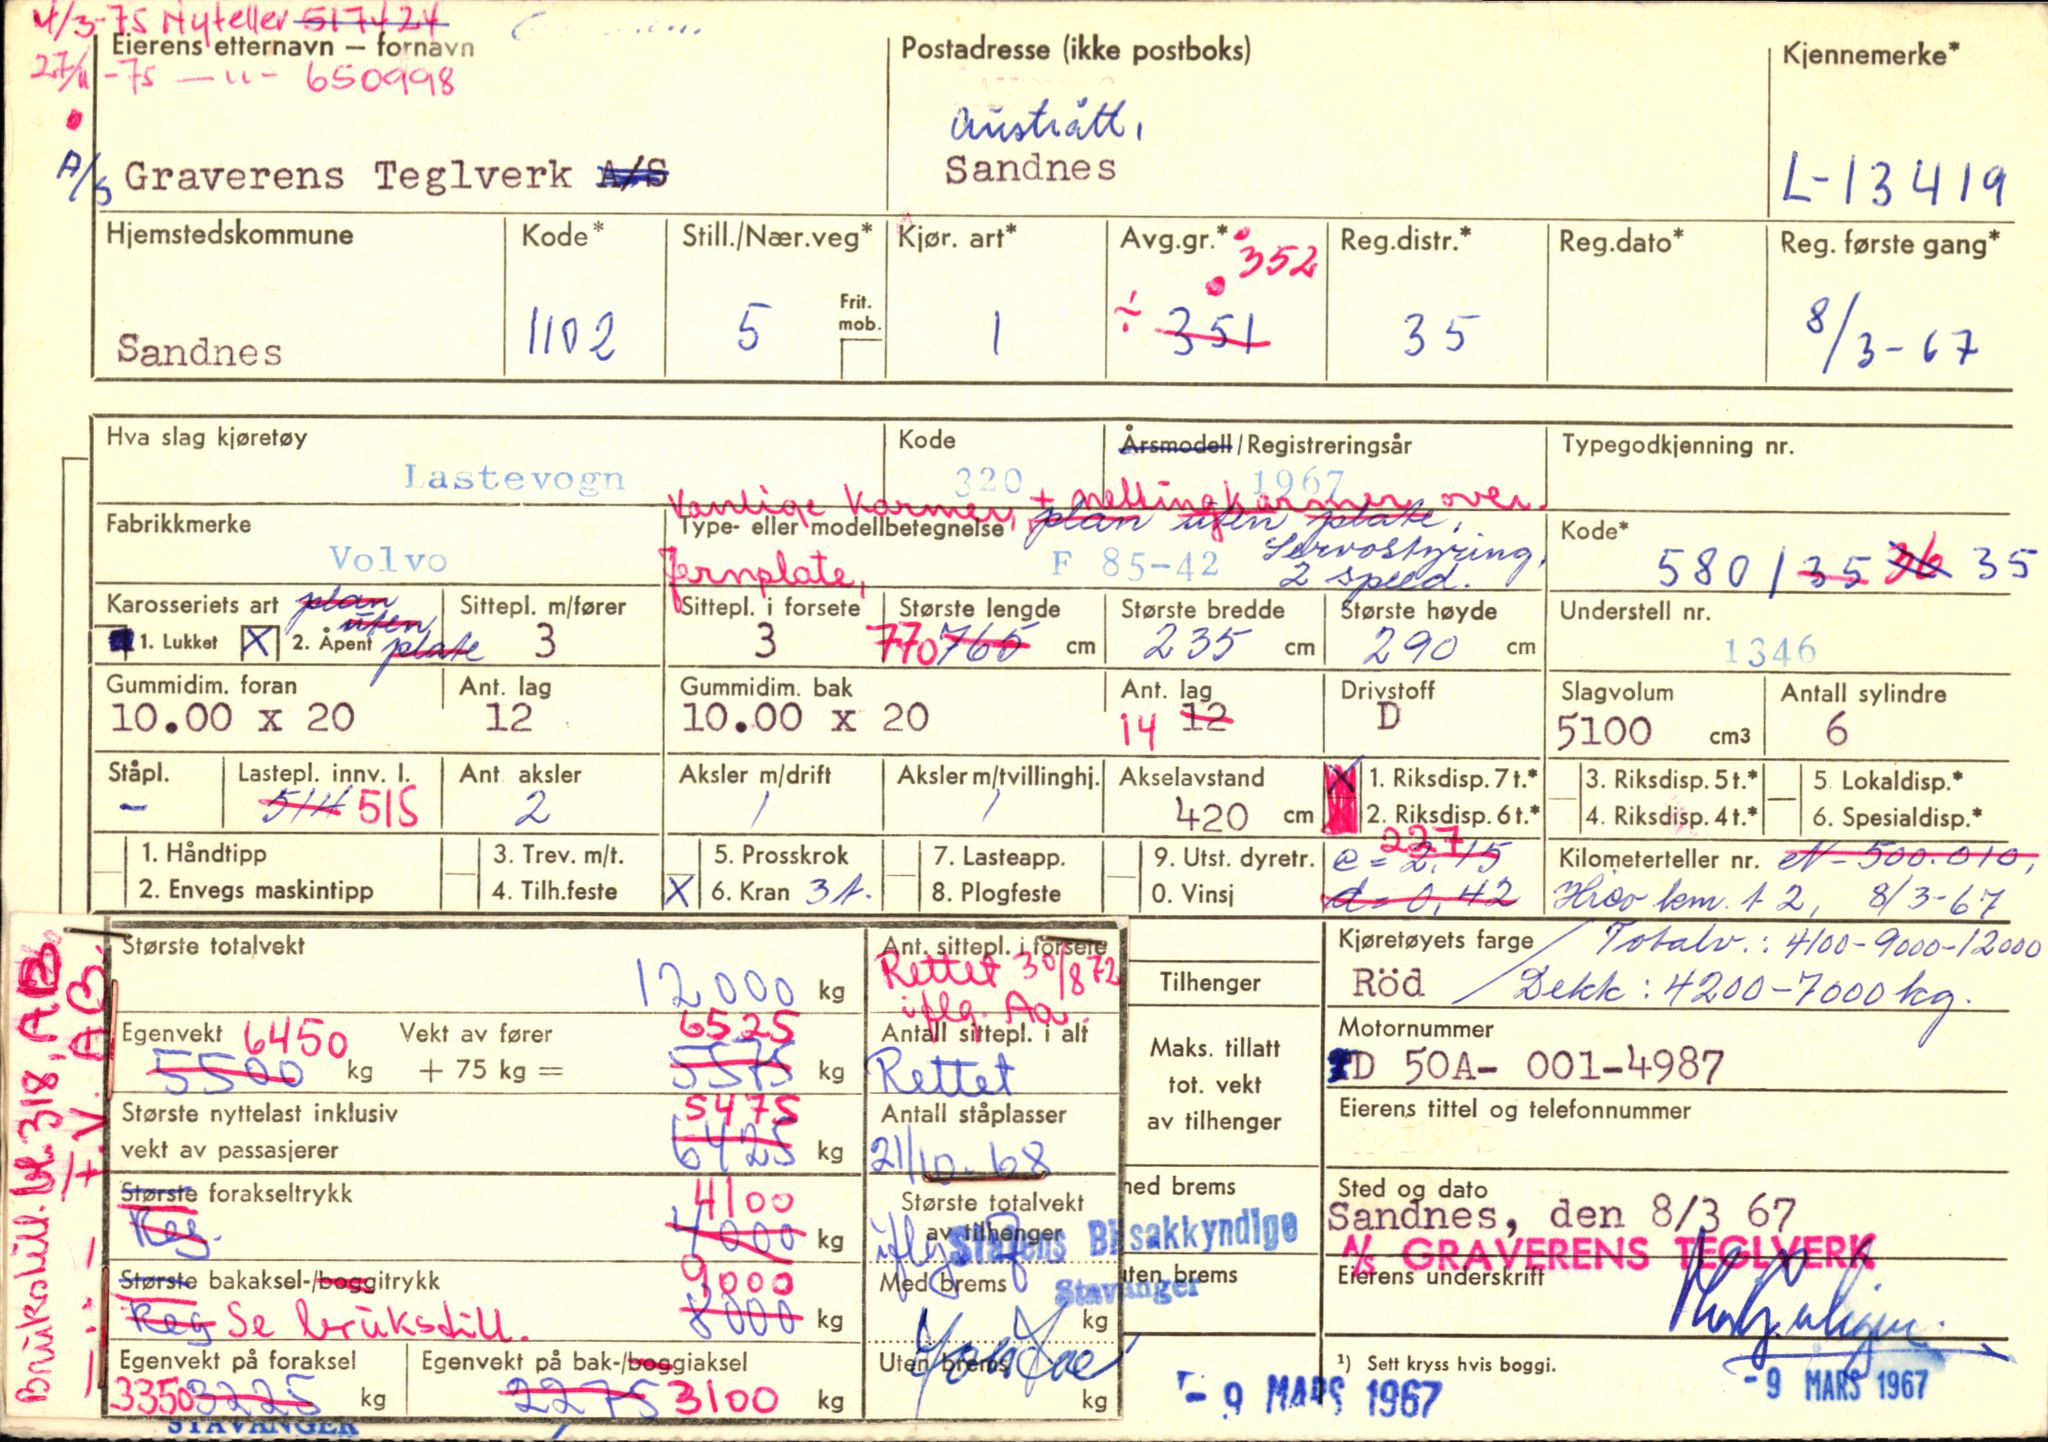 4/3-75 Nyteller 517424
Eierens etternavn – fornavn
27/11 -75 — " - 650998
Postadresse (ikke postboks)
Kjennemerke*
Austrått,
A/S Graverens Teglverk A/S
Sandnes
L-13419
Hjemstedskommune Kode* Still./Nær.veg* Kjør. art* Avg.gr.* 352 Reg.distr.* Reg.dato* Reg. første gang*
Frit. mob.
Sandnes 1102 5 1 ÷ 351 35 8/3-67
Hva slag kjøretøy Kode Årsmodell/Registreringsår Typegodkjenning nr.
Lastevogn 320 1967
Vanlige karmer, + nettingkarmer over
Fabrikkmerke Type- eller modellbetegnelse plan uten plate, Kode*
Volvo Jernplate, F 85-42 Servostyring, 2 speed. 580/35 36 35
Karosseriets art plan uten plate Sittepl. m/fører Sittepl. i forsete Største lengde Største bredde Største høyde Understell nr.
1. Lukket X 2. Åpent 3 3 770 765 cm 235 cm 290 cm 1346
Gummidim. foran Ant. lag Gummidim. bak Ant. lag Drivstoff Slagvolum Antall sylindre
10.00 x 20 12 10.00 x 20 14 12 D 5100 cm3 6
Ståpl. Lastepl. innv. l. Ant aksler Aksler m/drift Aksler m/tvillinghj. Akselavstand X 1. Riksdisp. 7 t.* 3. Riksdisp. 5 t.* 5. Lokaldisp.*
– 514 515 2 1 1 420 cm 2. Riksdisp. 6 t.* 4. Riksdisp. 4 t.* 6. Spesialdisp.*
1. Håndtipp 3. Trev. m/t. 5. Prosskrok 7. Lasteapp. 9. Utst. dyretr. 227 e = 2,15 Kilometerteller nr. eN - 500.010,
2. Envegs maskintipp 4. Tilh.feste X 6. Kran 3 t. 8. Plogfeste 0. Vinsj d = 0,42 km. t 2, 8/3-67
Største totalvekt
12000 kg
Ant. sittepl. i forsete
Rettet 30/8 72
iflg. Aa.
Egenvekt 6450 Vekt av fører 6525
5500 kg + 75 kg = 5575 kg
Antall sittepl. i alt
Rettet
Største nyttelast inklusiv 5475
vekt av passasjerer 6425 kg
Antall ståplasser
21/10-68
Største forakseltrykk 4100
Reg. 4000 kg
Største totalvekt
av tilhenger
iflg
Største bakaksel-/boggitrykk 9000
Reg Se brukstill. 8000 kg
Med brems
kg
Egenvekt på foraksel Egenvekt på bak-/boggiaksel
3350 3225 kg 2275 3100 kg
Uten brems
kg
Statens Bilsakkyndige
Stavanger
STAVANGER
Tilhenger
Maks. tillatt
tot. vekt
av tilhenger
med brems
uten brems
- 9 MARS 1967
Kjøretøyets farge Totalv.: 4100-9000-12000
Röd Dekk: 4200-7000 kg.
Motornummer
TD 50A- 001-4987
Eierens tittel og telefonnummer
Sted og dato
Sandnes, den 8/3 67
A/S GRAVERENS TEGLVERK
Eierens underskrift
¹) Sett kryss hvis boggi.
- 9 MARS 1967